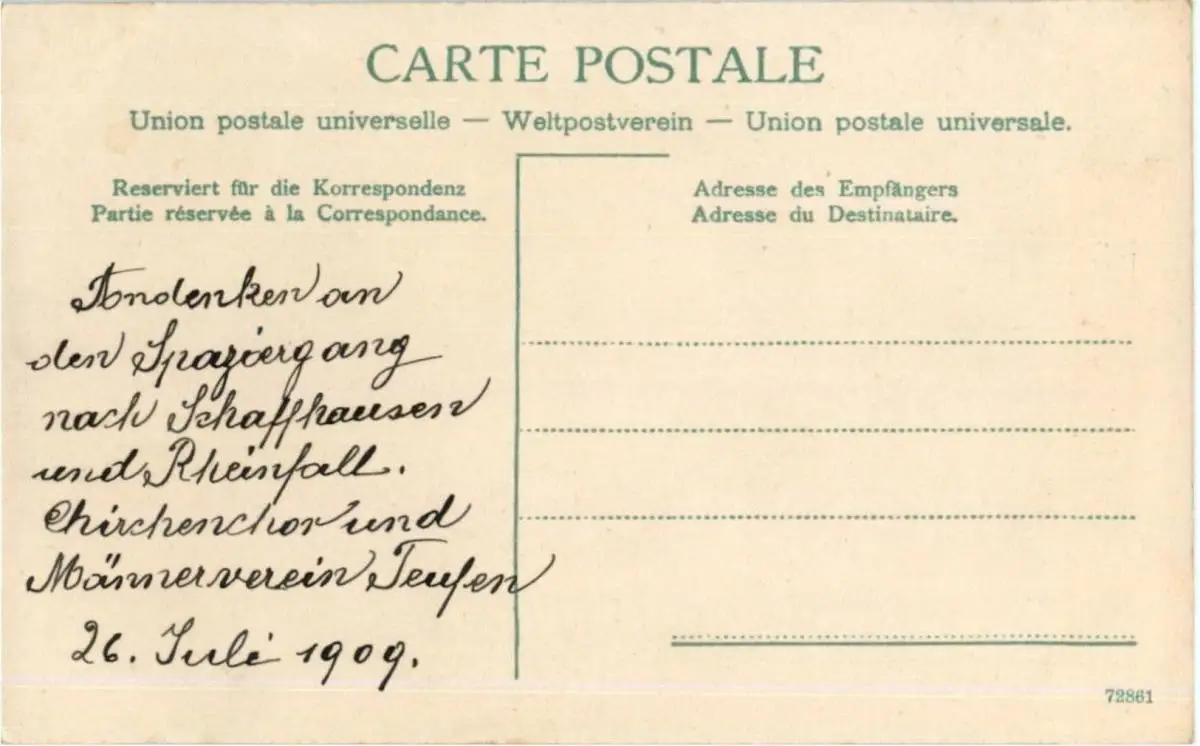 CARTE POSTALE
Union postale universelle — Weltpostverein — Union postale universale.
Reserviert für die Korrespondenz
Partie réservée à la Correspondance.
Adresse des Empfängers
Adresse du Destinataire.
Andenken an
den Spaziergang
nach Schaffhausen
und Rheinfall.
Chirchenchor und
Männerverein Teufen
26. Juli 1909.
72861